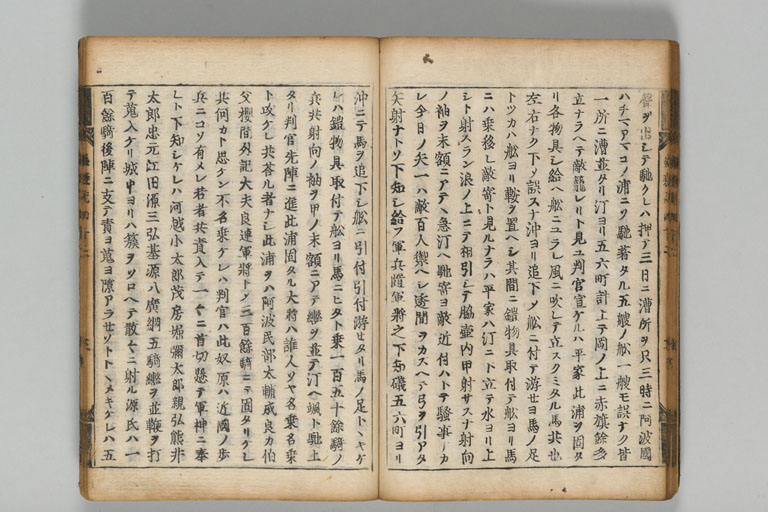 聲ヲ出シテ馳クレハ押テ三日ニ漕所ヲ只三時ニ阿波國
ハチマアマコノ浦ニソ馳著タル五艘ノ舩一艘モ誤ナク皆
一所ニ漕並タリ汀ヨリ五六町計上テ岡ノ上ニ赤旗餘多
立ナラヘテ敵籠レリト見ユ判官宣ケルハ平家此浦ヲ固タ
リ各物具シ給ヘ舩ニユラレ風ニ吹レテ立スクミタル馬共也
左右ナク下シ誤スナ沖ヨリ追下メ舩ニ付テ游セヨ馬ノ足
トツカハ舩ヨリ鞍ヲ置ヘシ其間ニ鎧物具取付テ舩ヨリ馬
ニハ乗移レ敵寄ト見ルナラハ平家ハ汀ニ下立テ水ヨリ上
シト射スラン浪ノ上ニテ相引シテ脇壷内甲射サスナ射向
ノ袖ヲ末額ニアテヽ急汀ヘ馳寄ヨ敵近付ハトテ騒事ナカ
レ今日ノ矢一ハ敵百人禦ヘシ透間ヲカスヘテ弓ヲ引アタ
矢射ナトソ下知シ給フ軍兵蹉軍將之下知磯五六町ヨリ
沖ニテ馬ヲ追下シ舩ニ引付引付游セタリ馬ノ足トヽキケ
レハ鎧物具取付テ舩ヨリ馬ニヒタト乗一百五十餘騎ノ
兵共射向ノ袖ヲ甲ノ末額ニアテ轡ヲ並テ汀ヘ颯ト馳上
タリ判官先陣ニ進此浦固タル大將ハ誰人ソヤ名乗名乗
ト攻ケレ共荅ル者ナシ此浦ヲハ阿波民部太輔成良カ伯
父櫻間外記大夫良連軍將トメ三百餘騎ニテ固タリケレ
共何カト思ケン不名乗ケレハ判官ハ此奴原ハ近國ノ歩
兵ニコソ有メレ若者共責入テ一々ニ首切懸テ軍神ニ奉
レト下知シケレハ河越小太郎茂房堀彌太郎親弘熊井
太郎忠元江田源三弘基源八廣綱五騎轡ヲ並鞭ヲ打
テ蒐入ケリ城中ヨリハ簇ヲソロヘテ散々ニ射ル源氏ハ一
百餘騎後陣ニ支テ責ヨ蒐ヨ隙アラセソトヽメキケレハ五